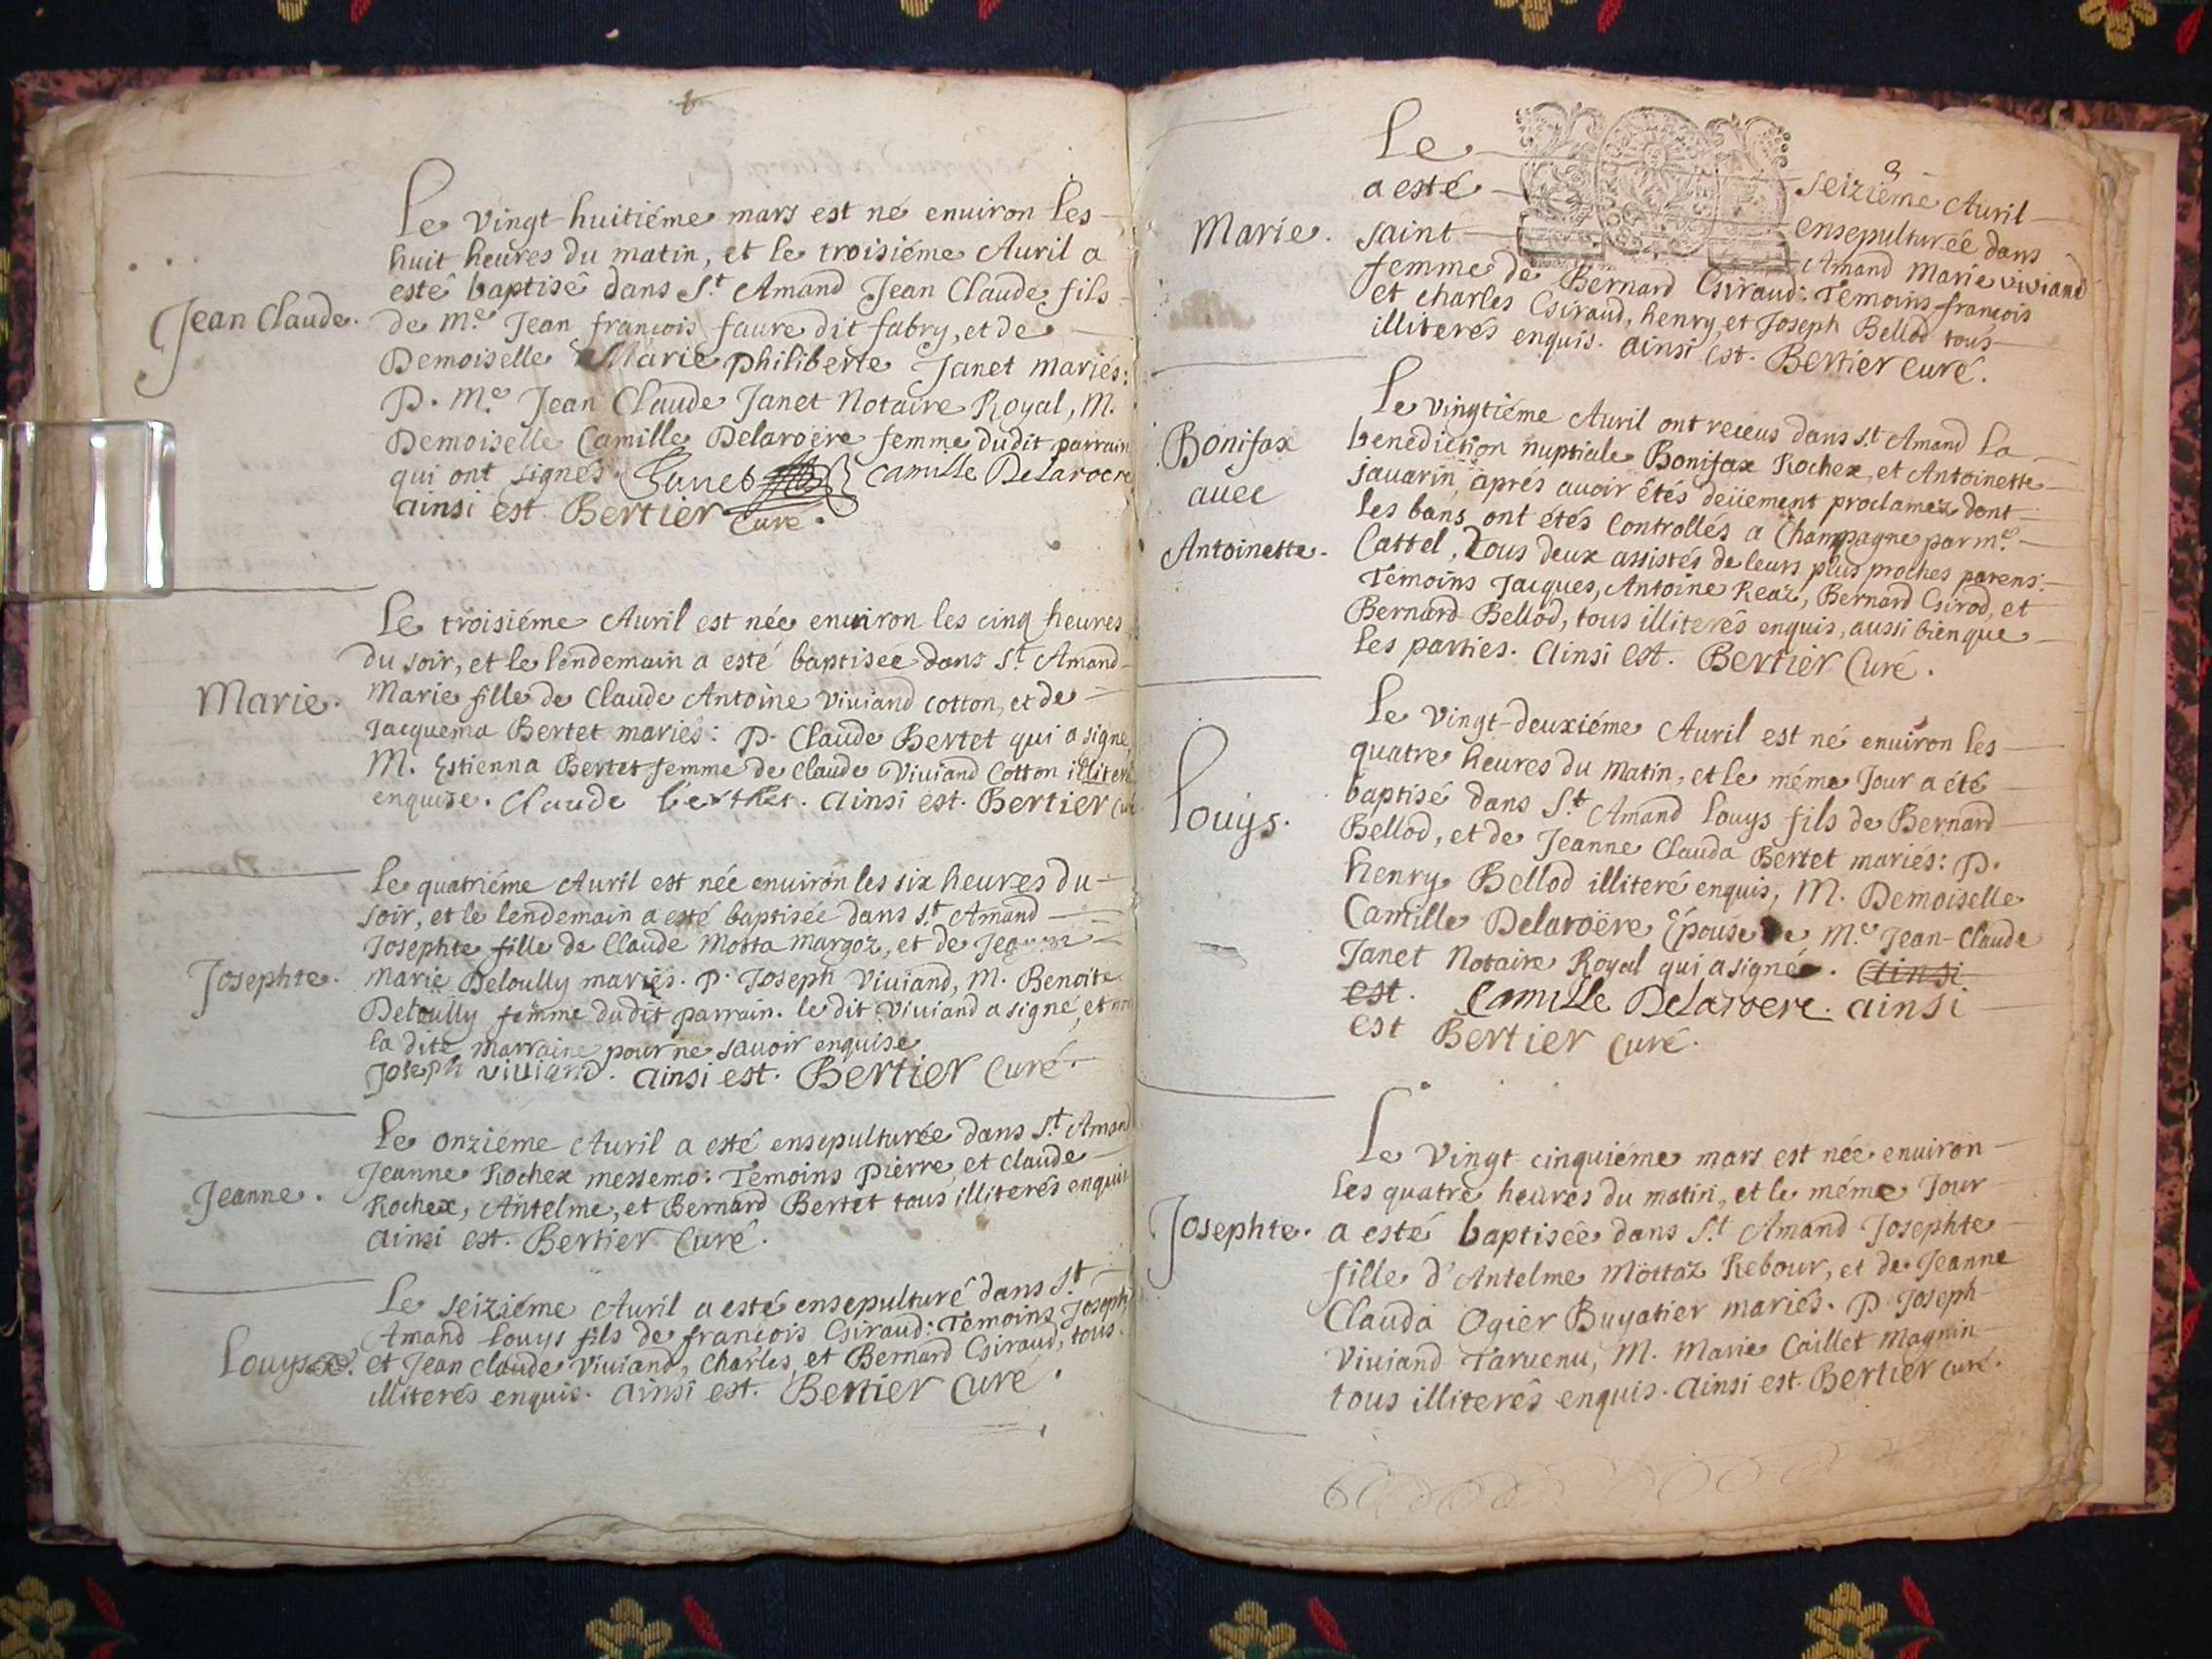 Le vingt-huitiéme mars est né enuiron les
huit heures du matin, et le troisiéme Auril a
esté baptisé dans S.t Amand Jean Claude fils
Jean Claude.
de M.e Jean françois faure dit fabry, et de
Demoiselle Marie philiberte Janet mariés:
P. M.e Jean Claude Janet Notaire Royal, M.
Demoiselle Camille Delaroëre femme dudit parrain
qui ont signés. Janet Camille Delaroere
ainsi est Bertier Curé.
Le troisiéme Auril est née enuiron les cinq heures
du soir, et le lendemain a esté baptisee dans S.t Amand
Marie.
Marie fille de Claude Antoine Viuiand cotton, et de
Jacquema Bertet mariés: P. Claude Bertet qui a signé
M. Estienna Bertet femme de Claude Viuiand Cotton
enquise. Claude berthet. ainsi est. Bertier
Le quatriéme Auril est née enuiron les six heures du
soir, et le lendemain a esté baptisée dans S.t Amand
Josephte fille de Claude Motta Margoz, et de Jeanne
Josephte.
Marie Deloully mariés. P. Joseph Viuiand, M. Benoite
Deloully femme dudit parrain. le dit Viuiand a signé, et
la dite marraine pour ne sauoir enquise
Joseph viuiand. ainsi est. Bertier Curé.
Le onziéme Auril a esté ensepulturée dans S.t Amand
Jeanne Rochex messemo: Témoins pierre, et claude
Jeanne.
Rochex, Antelme, et Bernard Bertet tous illiterés enquis
ainsi est. Bertier Curé.
Le seiziéme Auril a esté ensepulturé dans S.t
Amand Louys fils de françois Giraud: Témoins Joseph
Louys
et Jean claude Viuiand, Charles, et Bernard Giraud, tous
illiterés enquis. ainsi est. Bertier Curé.
Le seiziéme Auril
a esté ensepulturée dans
Marie.
saint Amand Marie viviand
femme de Bernard Giraud: Témoins françois
et charles Giraud, henry, et Joseph Bellod tous
illiterés enquis. ainsi est. Bertier Curé.
Le vingtiéme Auril ont receus dans S.t Amand la
Bonifax
benediction nuptiale Bonifax Rochex, et Antoinette
auec
jauarin, aprés auoir étés deüement proclamez dont
les bans ont étés Controllés a Champagne par m.e
Antoinette.
Cattel, tous deux assistés de leurs plus proches parens:
Témoins Jacques, Antoine Reaz, Bernard Girod, et
Bernard Bellod, tous illiterés enquis, aussi bien que
les parties. ainsi est. Bertier Curé.
Le vingt-deuxiéme Auril est né enuiron les
quatre heures du matin, et le méme Jour a été
Louys.
baptisé dans S.t Amand Louys fils de Bernard
Bellod, et de Jeanne Clauda Bertet mariés: P.
henry Bellod illiteré enquis, M. Demoiselle
Camille Delaroëre Épouse de M.e Jean-Claude
Janet Notaire Royal qui a signé. ainsi
est. Camille Delaroere. ainsi
est Bertier curé.
Le vingt cinquiéme mars est née enuiron
les quatre heures du matin, et le méme Jour
Josephte.
a esté baptisée dans S.t Amand Josephte
fille d'Antelme Mottaz Rebour, et de Jeanne
Clauda Ogier Buyatier mariés. P. Joseph
Viuiand Taruenu, M. Marie Caillet Magnin
tous illiterés enquis. ainsi est. Bertier curé.